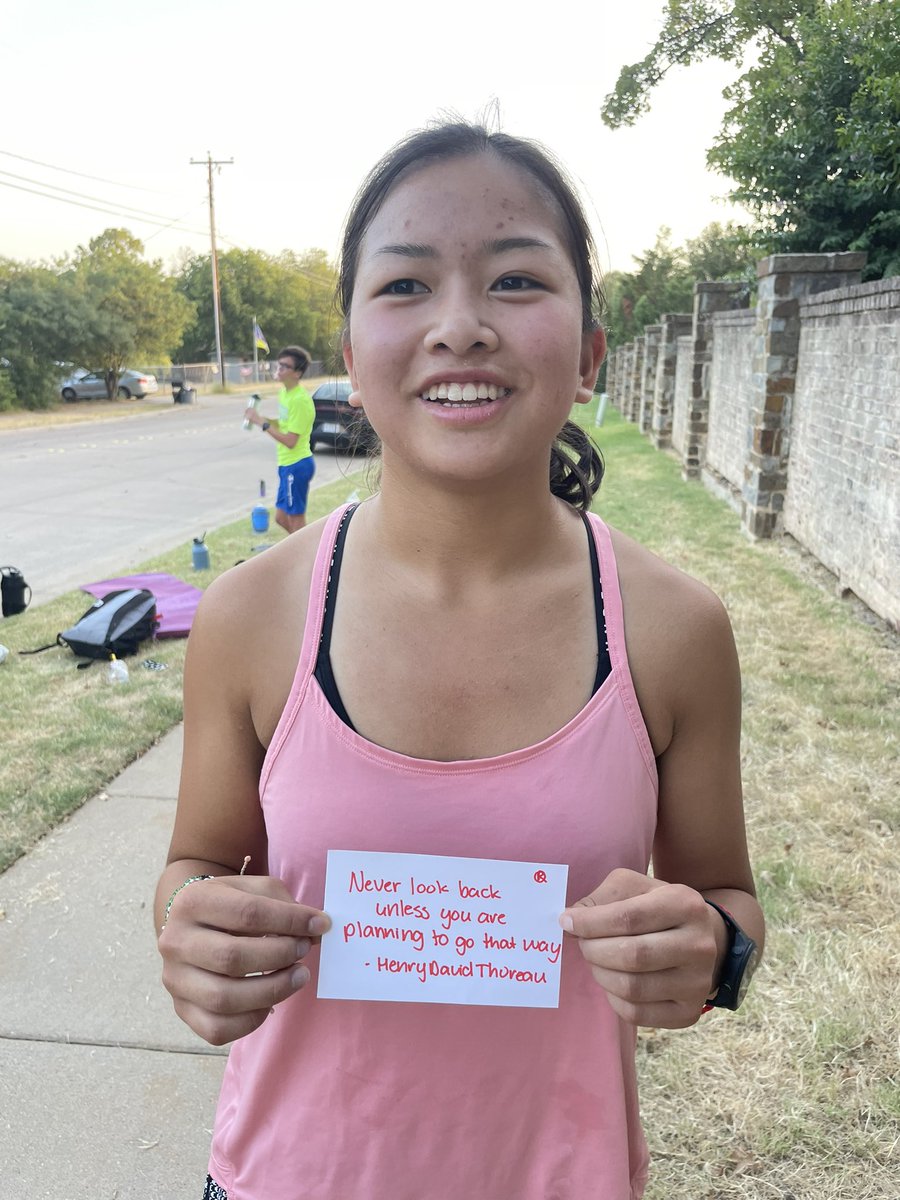 ®
Never look back
unless you are
planning to go that way
- Henry David Thoreau